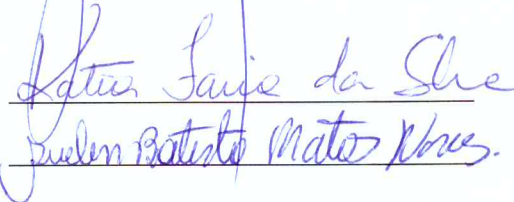 Katia Faria da Silva
Suelen Batista Matos Neves.